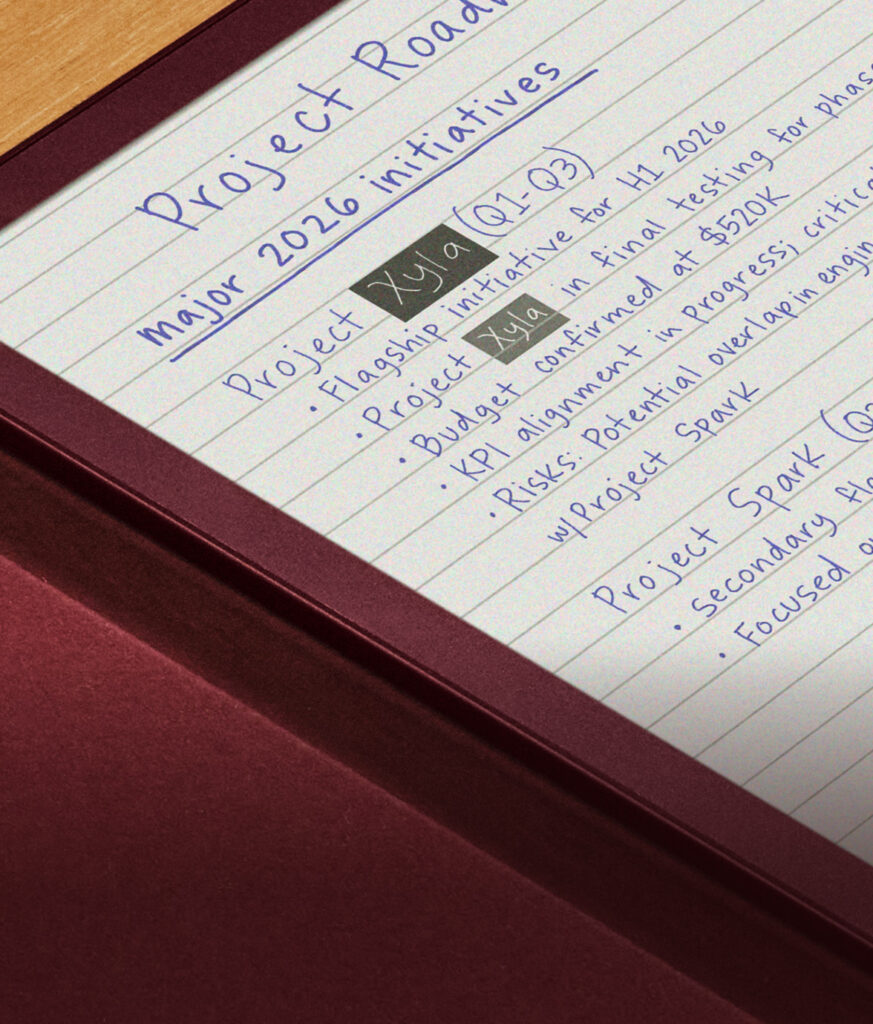 Project
major 2026 initiatives
Project Xyla (Q1-Q3)
• Flagship initiative for H1 2026
• Project Xyla in final testing for phase
• Budget confirmed at $520K
• KPI alignment in progress; critical
• Risks: Potential overlap in engin
w/Project Spark
Project Spark (Q2
• secondary
• Focused